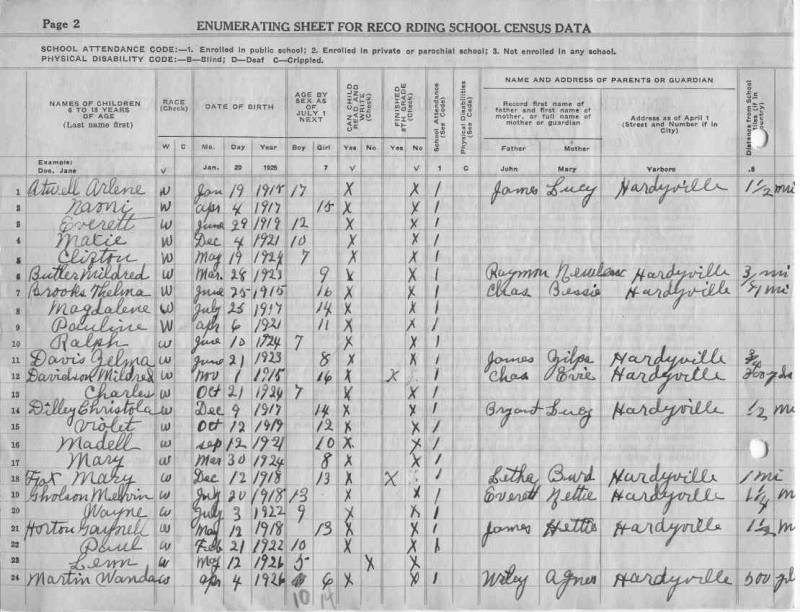 Page 2
ENUMERATING SHEET FOR RECO RDING SCHOOL CENSUS DATA
SCHOOL ATTENDANCE CODE:—1. Enrolled in public school; 2. Enrolled in private or parochial school; 3. Not enrolled in any school.
PHYSICAL DISABILITY CODE:—B—Blind; D—Deaf C—Crippled.
NAMES OF CHILDREN 6 TO 18 YEARS OF AGE (Last name first)
RACE (Check)
W C
DATE OF BIRTH
Mo. Day Year
AGE BY SEX AS OF JULY 1 NEXT
Boy Girl
CAN CHILD READ AND WRITE (Check)
Yes No
FINISHED 8TH GRADE (Check)
Yes No
School Attendance (See Code)
Physical Disabilities (See Code)
NAME AND ADDRESS OF PARENTS OR GUARDIAN
Record first name of father and first name of mother, or full name of mother or guardian
Father Mother
Address as of April 1 (Street and Number if in City)
Distance from School
Example:
Doe, Jane V Jan. 29 1925 7 V V 1 C John Mary Yarboro .5
1 Atwell Arlene W Jan 19 1915 17 X X 1 James Lucy Hardyville 1 1/2 mi
2 Naomi W Apr 4 1917 15 X X 1
3 Everett W June 29 1919 12 X X 1
4 Matie W Dec 4 1921 10 X X 1
5 Clifton W May 19 1924 7 X X 1
6 Butler Mildred W Mar. 28 1923 9 X X 1 Raymon Hardyville mi
7 Brooks Thelma W June 25 1915 16 X X 1 Chas Bessie Hardyville mi
8 Magdalene W July 25 1917 14 X X 1
9 Pauline W Apr 6 1921 11 X X 1
10 Ralph W June 10 1924 7 X X 1
11 Davis Zelma W June 21 1923 8 X X 1 James Zilpa Hardyville 3/4
12 Davidson Mildred W Nov 1 1915 16 X X 1 Chas Evie Hardyville 300 yds
13 Charles W Oct 21 1924 7 X X 1
14 Dilley Christola W Dec 9 1917 14 X X 1 Bryant Lucy Hardyville 1/2 m
15 Violet W Oct 12 1919 12 X X 1
16 Madell W Sep 12 1921 10 X X 1
17 Mary W Mar 30 1924 8 X X 1
18 Fox Mary W Dec 12 1918 13 X X 1 Letha Burd Hardyville 1 mi
19 Gholson Melvin W July 20 1918 13 X X 1 Everett Nettie Hardyville 1 1/4 m
20 Wayne W July 3 1922 9 X X 1
21 Horton Gaynell W May 12 1918 13 X X 1 James Hettie Hardyville 1 1/2 m
22 Paul W Feb 21 1922 10 X X 1
23 Lenn W May 12 1926 5 X X
24 Martin Wanda W Apr 4 1926 6 X X 1 Wiley Agnes Hardyville 500 yd
10 14